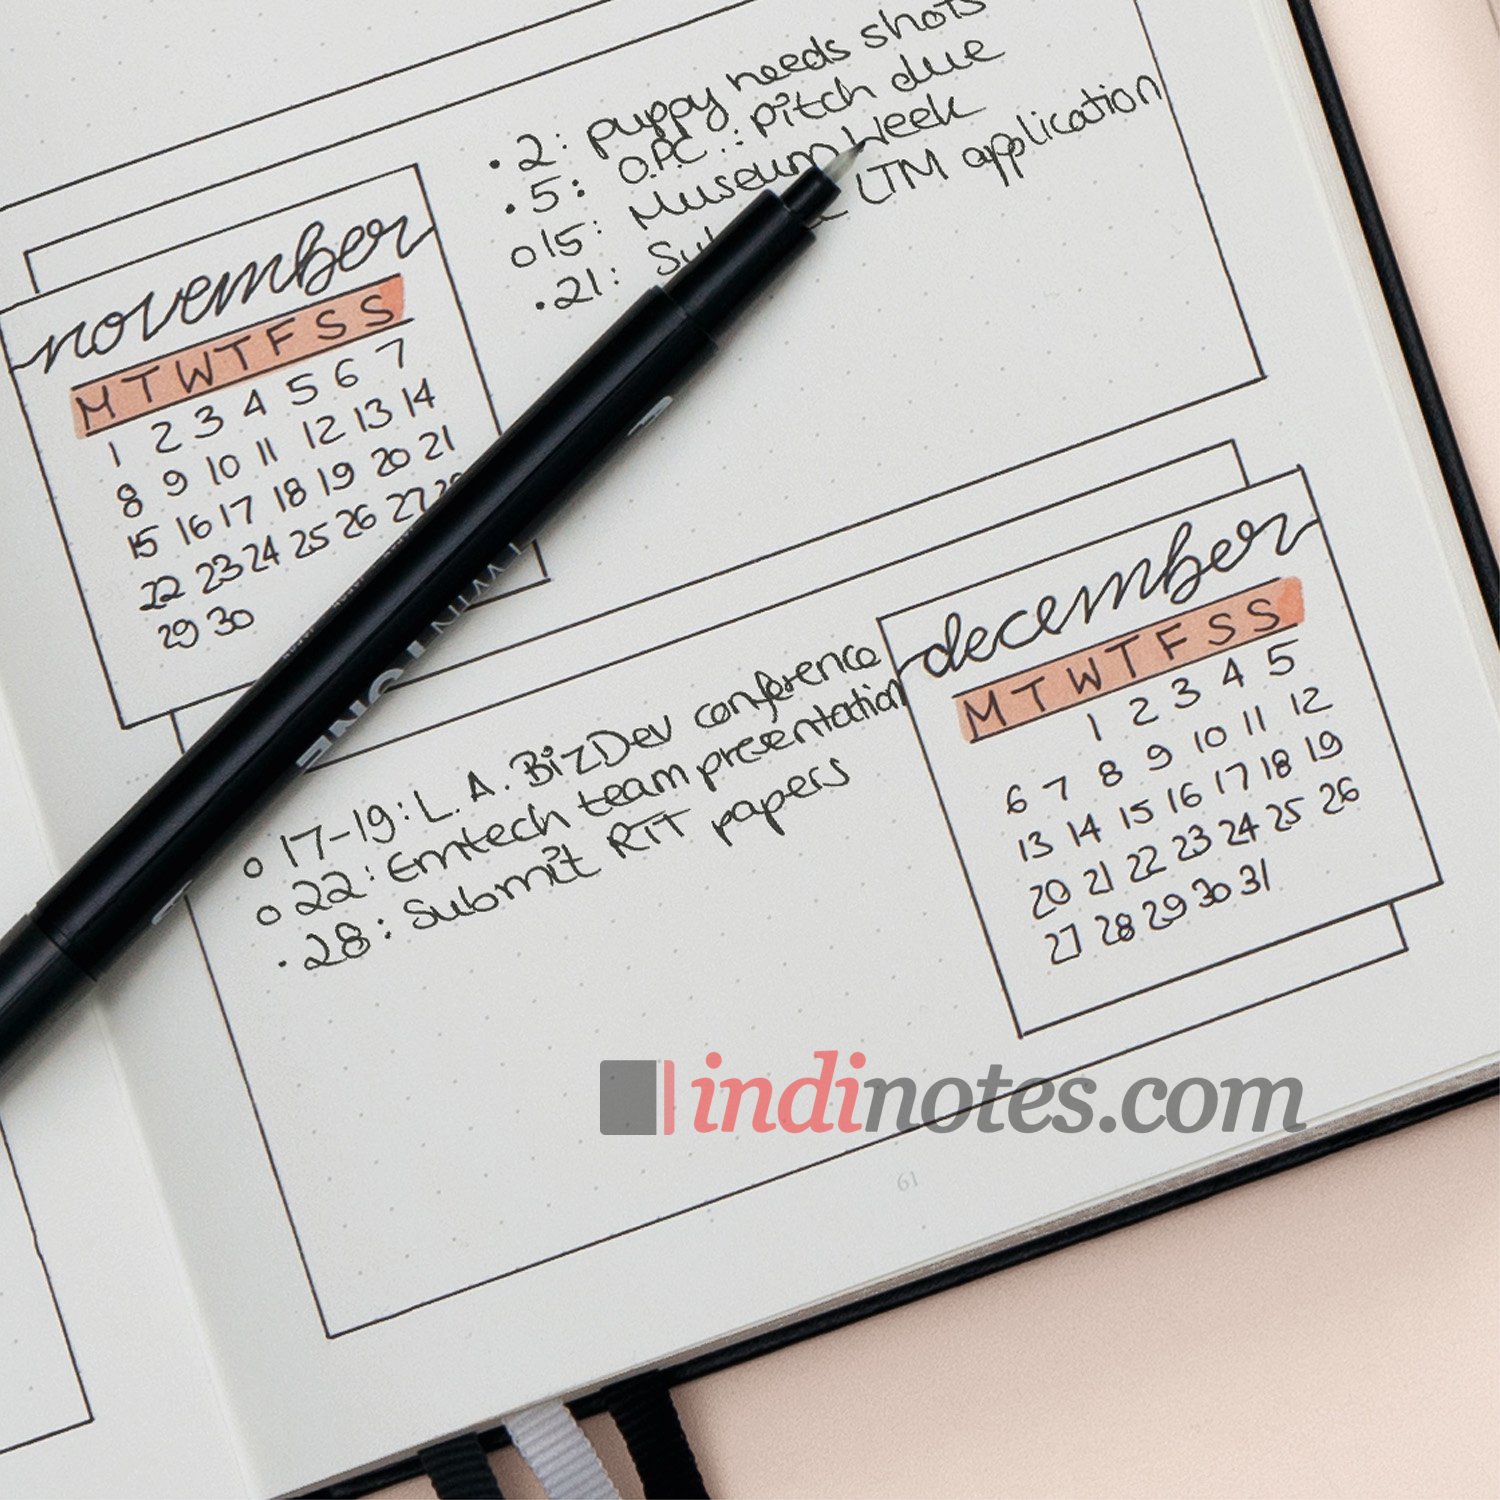 november
M T W T F S S
1 2 3 4 5 6 7
8 9 10 11 12 13 14
15 16 17 18 19 20 21
22 23 24 25 26 27 28
29 30
• 2: puppy needs shots
• 5: O.P.C.: pitch due
o 15: Museum Week
• 21: LTM application
december
M T W T F S S
1 2 3 4 5
6 7 8 9 10 11 12
13 14 15 16 17 18 19
20 21 22 23 24 25 26
27 28 29 30 31
o 17-19: L.A. BizDev conference
o 22: Emtech team presentation
• 28: Submit RTT papers
indinotes.com
61